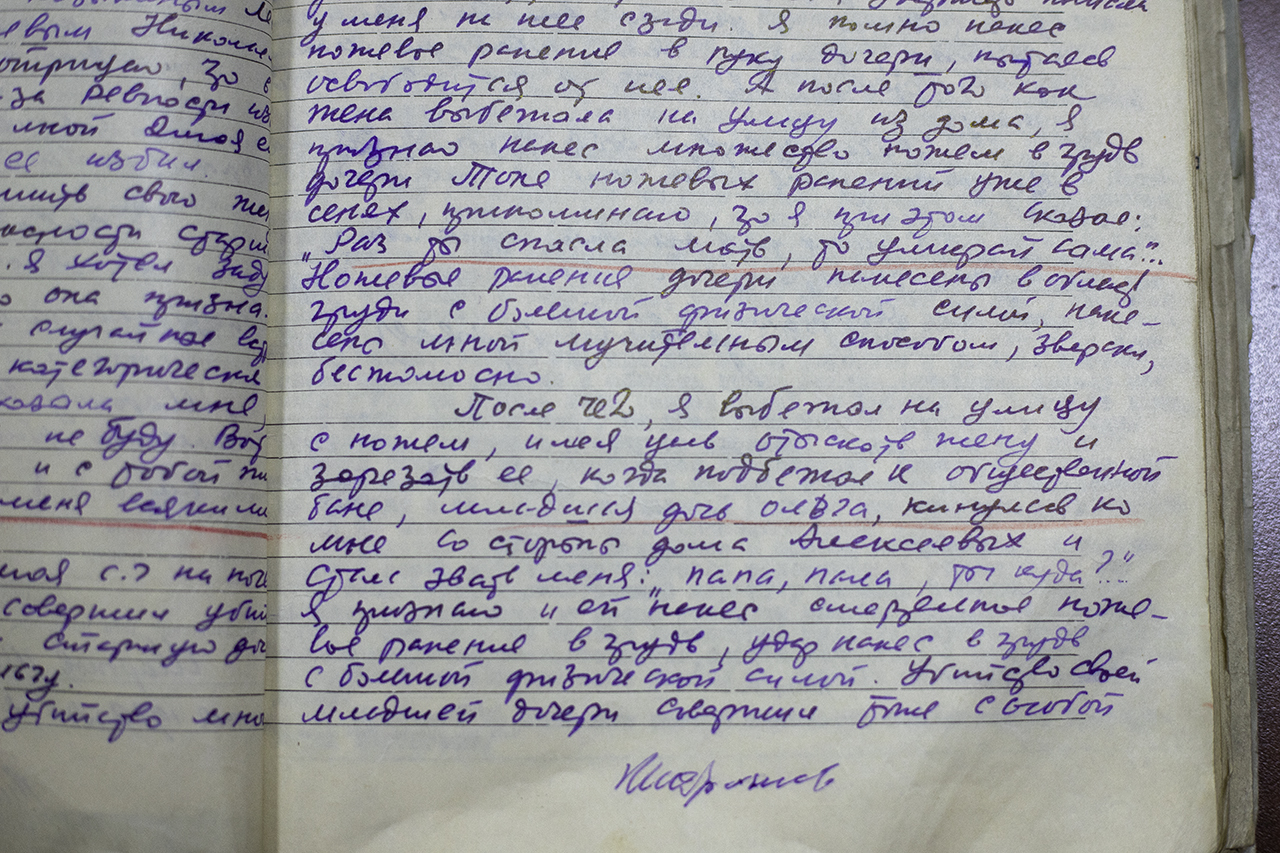 евым Николае
отрицаю, зо в
за ревности
мной
ее избил.
шить свого же
старш
. я хотел
о она призна.
случайное
категорически
ковала мне
не буду. Воз
и с тобой
меня всякими
на
совершил убий
старшую до
убийство мно
у меня на нее сзади. Я помню нанес
ножевое ранение в руку дочери, пытаясь
освободится от нее. А после того как
жена выбежала на улицу из дома, я
признаю нанес множество ножем в грудь
дочери Тоне ножевых ранений уже в
сенех, припоминаю, зо я при этом сказал:
„Раз ты спасла мать, то умирай сама"..
Ножевые ранения дочери нанесены в област
груди с большой физической силой, нане-
сено мной мучительным способом, зверски,
беспомосно.
После чего, я выбежал на улицу
с ножем, имея цель отыскать жену и
зарезать ее, когда подбежал к общественной
бане, младшая дочь Ольга, кинулась ко
мне со стороны дома Алексеевых и
стала звать меня: „папа, папа, ты куда?"
Я признаю и ей нанес смертельное ноже-
вое ранение в грудь, удар нанес в грудь
с большой физической силой. Убийство своей
младшей дочери совершил тоже с особой